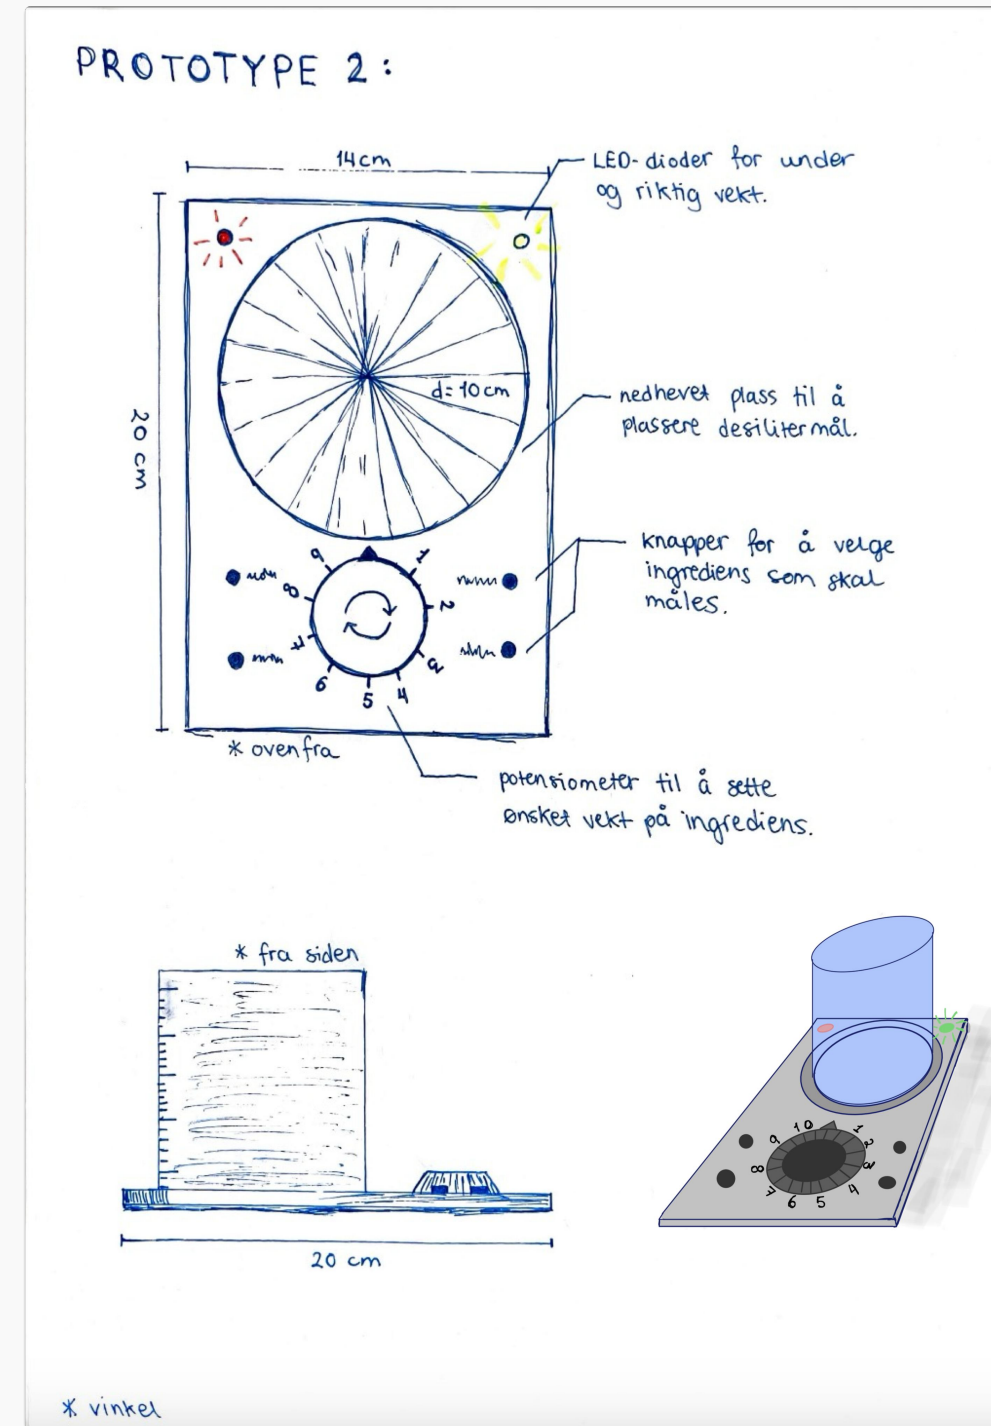 PROTOTYPE 2:
14 cm
LED-dioder for under
og riktig vekt.
20 cm
d= 10 cm
nedhevet plass til å
plassere desilitermål.
knapper for å velge
ingrediens som skal
måles.
9 1
8 2
7 3
6 5 4
* ovenfra
potensiometer til å sette
ønsket vekt på ingrediens.
* fra siden
20 cm
10 1
9 2
8
7 4
6 5
* vinkel